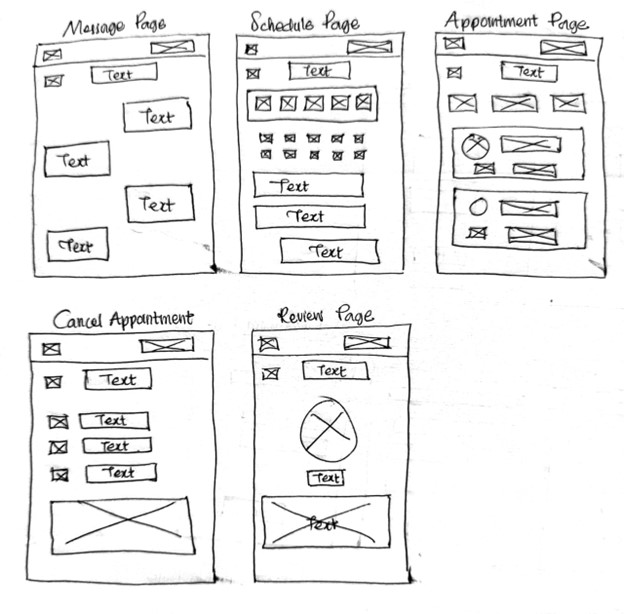 Message Page
Text
Text
Text
Text
Text
Schedule Page
Text
Text
Text
Text
Appointment Page
Text
Cancel Appantment
Text
Text
Text
Text
Review Page
Text
Text
Text